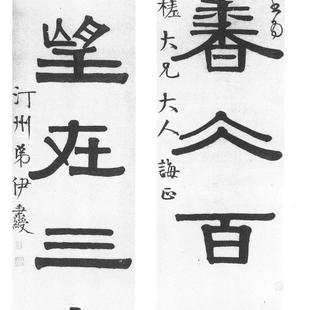 春
百
槎大兄大人誨正
望在三
汀州弟伊秉綬